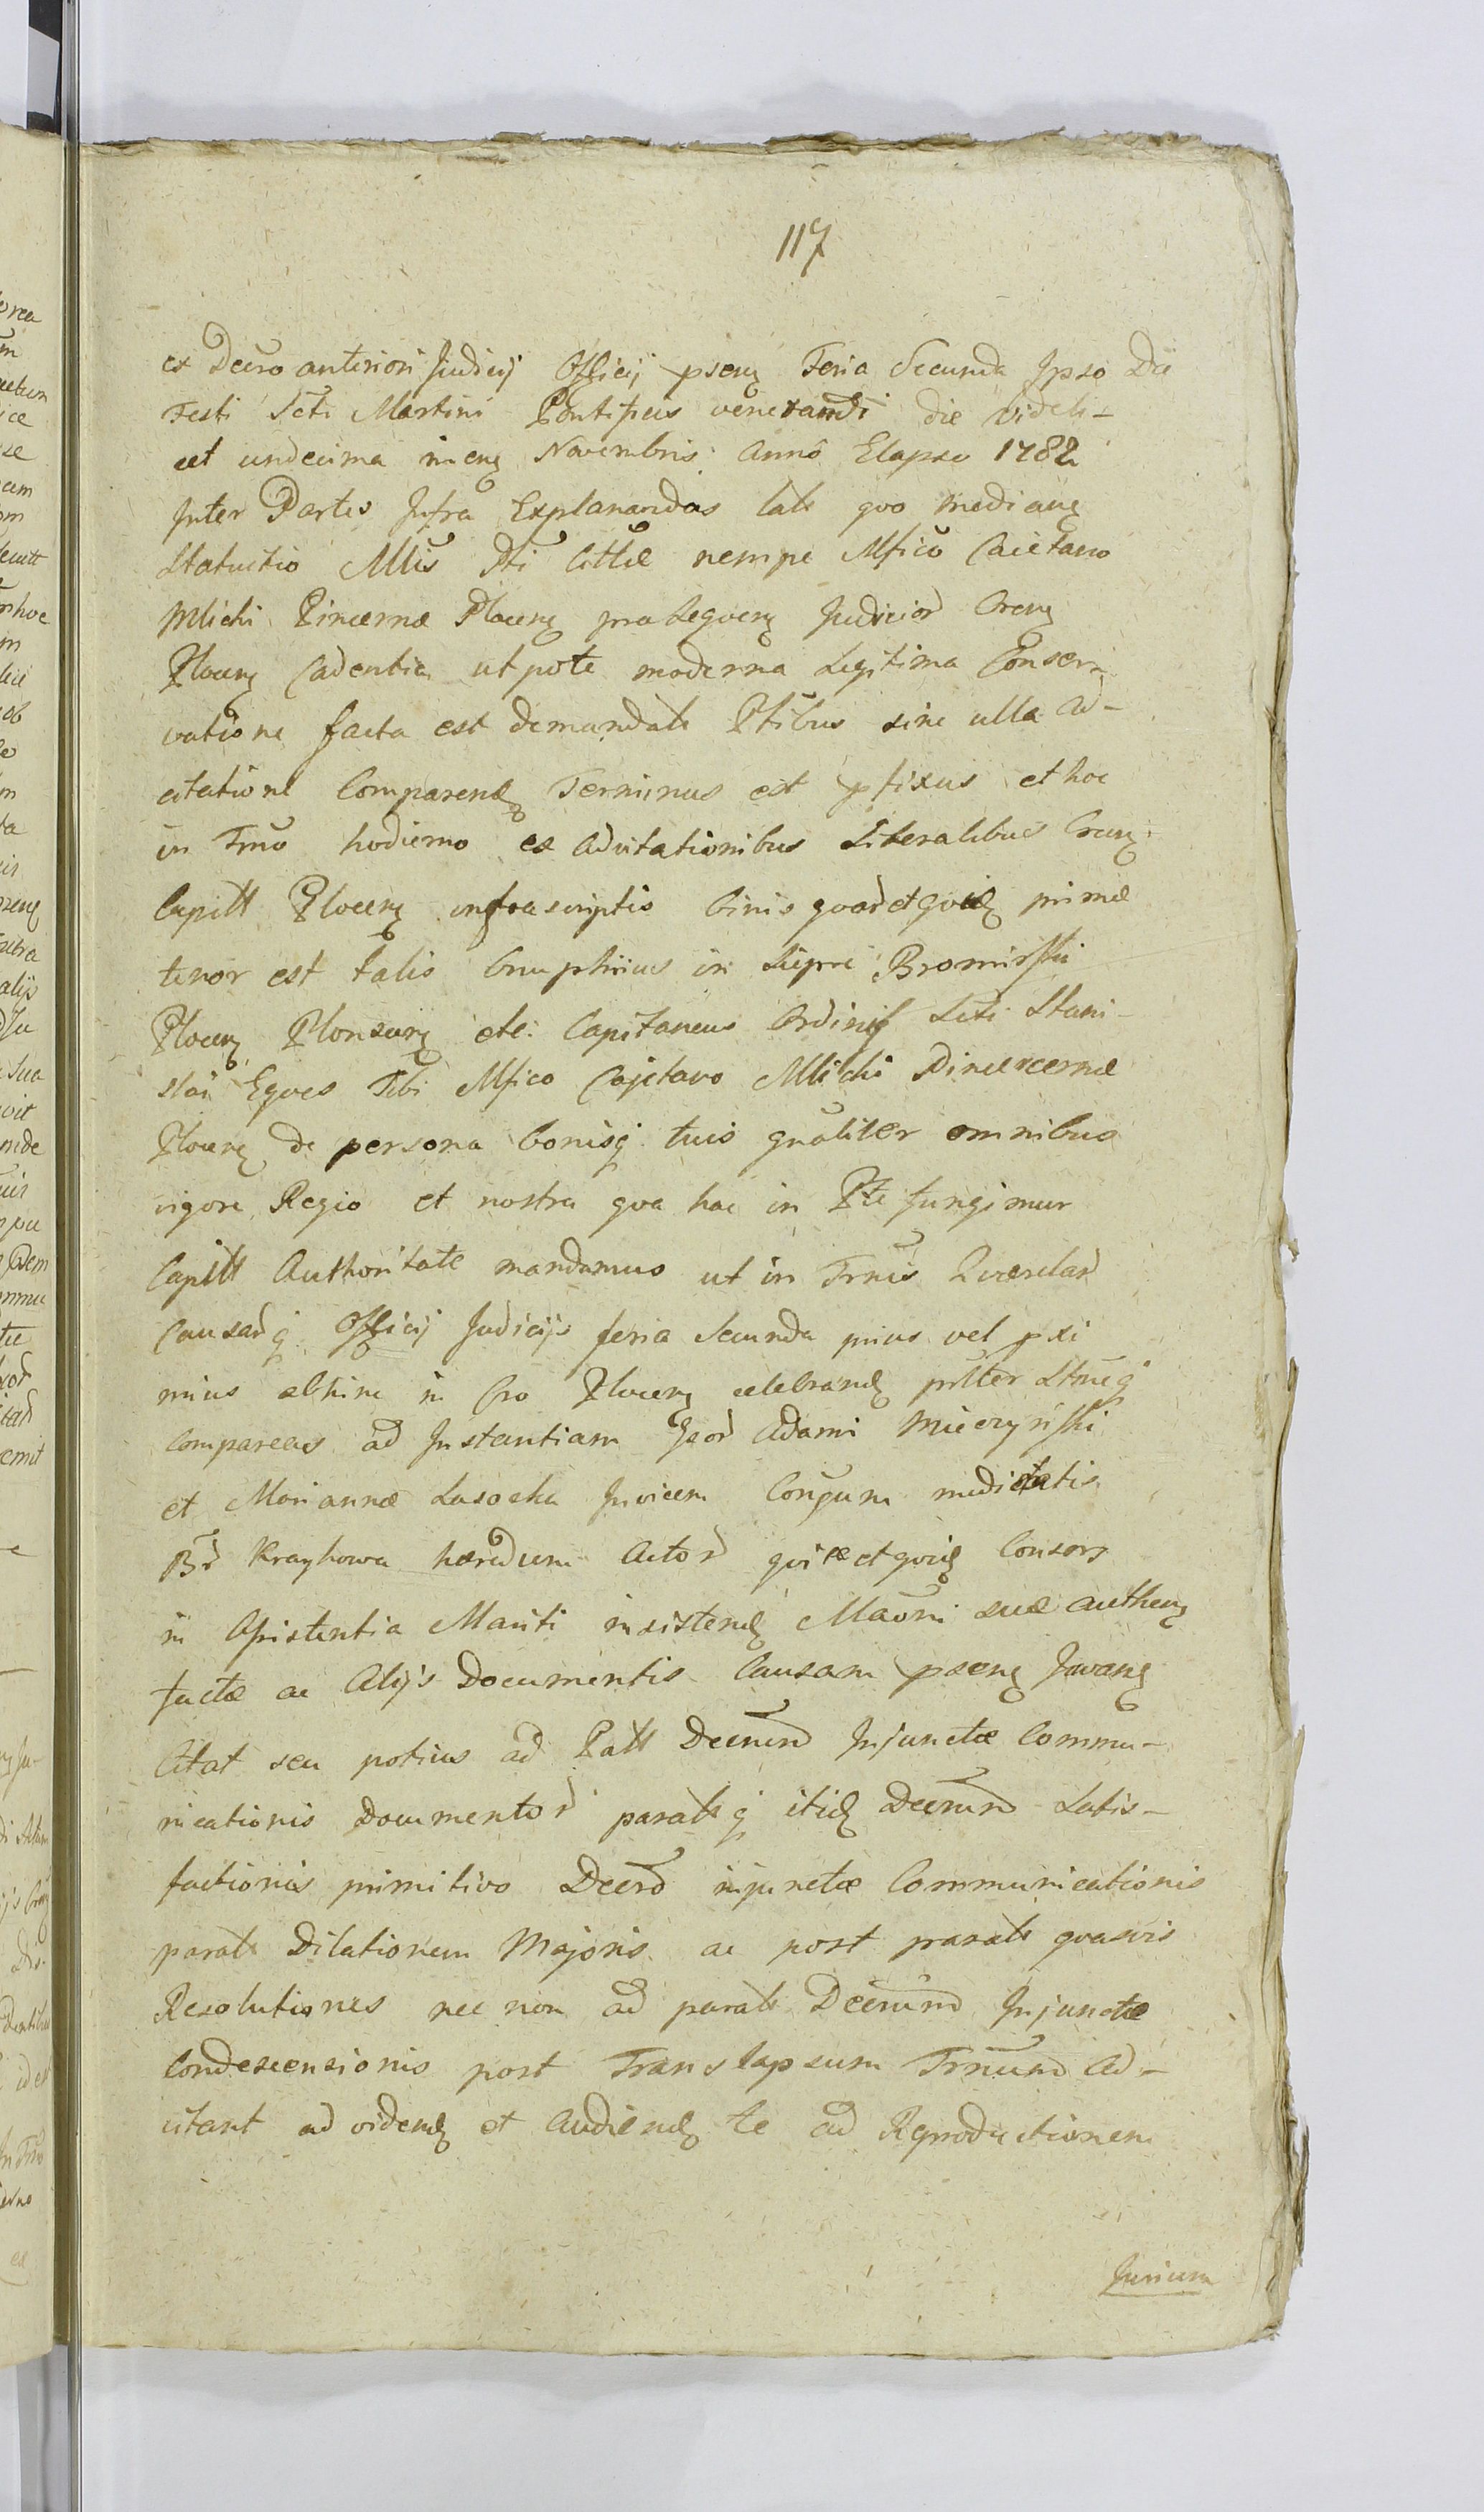 117
ex Decro anteriori Judicij Officij pseng Feria Secunda Ipso Die
Festi Scti Martini Pontificis venerandi die videli-
cet undecima meng Novembris Anno Elapso 1782
Inter Partes Infra Explanandas late quo mediang
Statuitio Mlis Pti nempe Mfico Caietano
Mlicki Pincerna Ploceng pro Seqveng Judicior Creng
Ploceng Cadentia utpote moderna Legitima Conser-
vatione facta est demandate Ptibus sine ulla Ad-
citatione Comparend Terminus est pfixus et hoc
in Trno hodierno ex Adcitationibus Literalibus Creng
Capitt Ploceng infrascriptis binis quor et quid primæ
tenor est talis Onuphrius in Siepre Bromirski
Ploceng Plonsceng etc: Capitaneus Ordinis Scti Stani-
slai Eques Tibi Mfico Cajetano Mlicki Pincernæ
Ploceng de persona bonisq tuis gnaliter omnibus
vigore Regio et nostra qva hac in Pte fungimur
Capitt Authoritate mandamus ut in Trnis Qværelar
Causarq Officij Judicijs feria Secunda prius vel pxi
mius abhinc in Cro Ploceng celebrand pntter Stneq
Compareas ad Instantiam Gsor Adami Mierzyński
et Mariannæ Lasocka Invicem Conjgum medietatis
Br Kraykowa hæredum Actor qui et quid Consors
in Assistentia Mariti insistend Maoni suæ autheng
factæ ac Alijs Documentis Causam pseng Jurang
Citat seu potius ad Patt Decrum Injunctæ Commu-
nicationis Documentor parateq itid Decrum Satis-
factionis primitivo Decro injunctæ Communicationis
parate Dilationem Majoris ac post parate quasvis
Resolutiones nec non ad parate Decrum Injunctæ
Condescensionis post Translapsum Trnum Ad-
citant ad videnq et Audienq te ad Reproductionem
Jurium